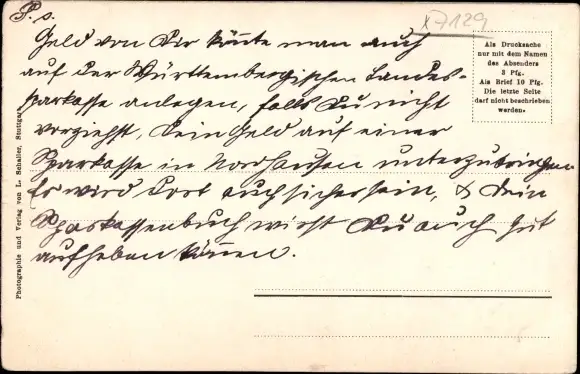 P. s.
X7129
Geld von Dir könnte man auch
auf der Württembergischen Landes-
sparkasse anlegen, falls Du nicht
vorziehst, Dein Geld auf einer
Sparkasse in Nordhausen unterzubringen
Es wird dort auch sicher sein, & Dein
Sparkassenbuch wirst Du auch gut
aufheben können.
Als Drucksache
nur mit dem Namen
des Absenders
3 Pfg.
Als Brief 10 Pfg.
Die letzte Seite
darf nicht beschrieben
werden.
Photographie und Verlag von L. Schaller, Stuttgart